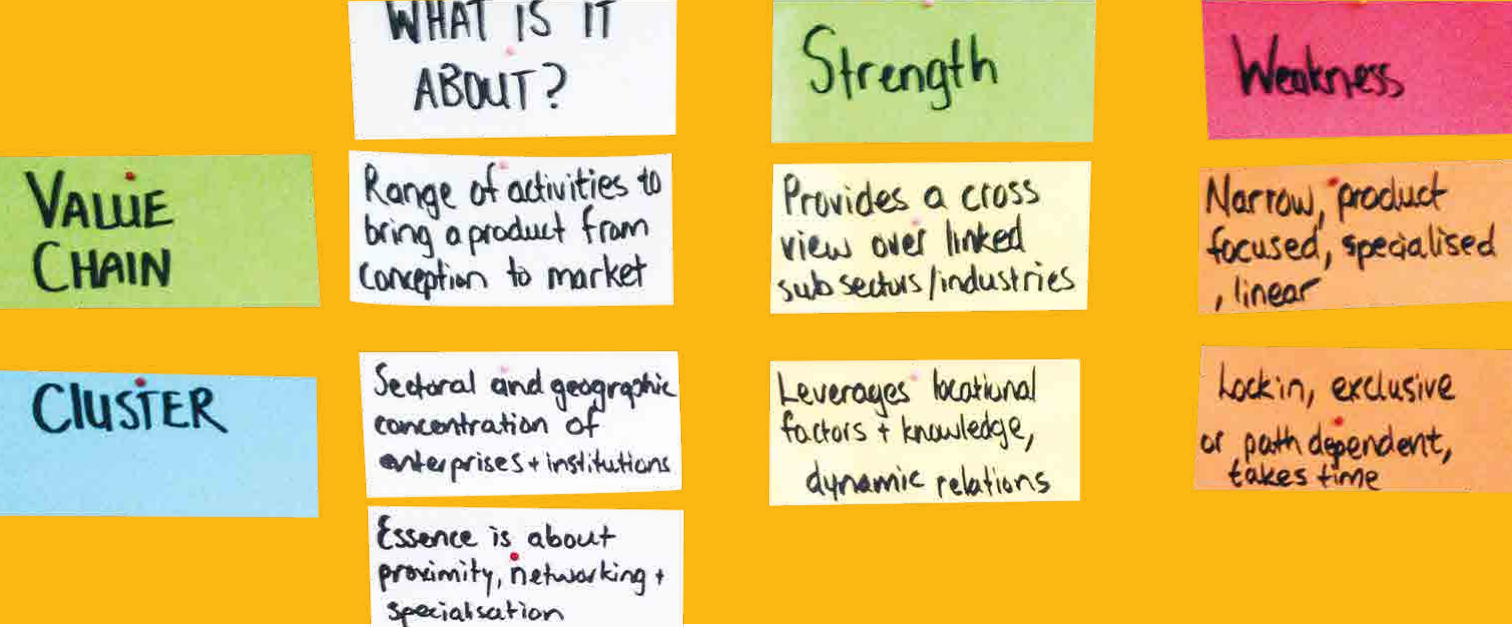 WHAT IS IT
ABOUT?
Strength
Weakness
VALUE
CHAIN
Range of activities to
bring a product from
conception to market
Provides a cross
view over linked
sub sectors/industries
Narrow, product
focused, specialised
, linear
CLUSTER
Sectoral and geographic
concentration of
enterprises + institutions
Leverages locational
factors + knowledge,
dynamic relations
Lock in, exclusive
or path dependent,
takes time
Essence is about
proximity, networking +
specialisation